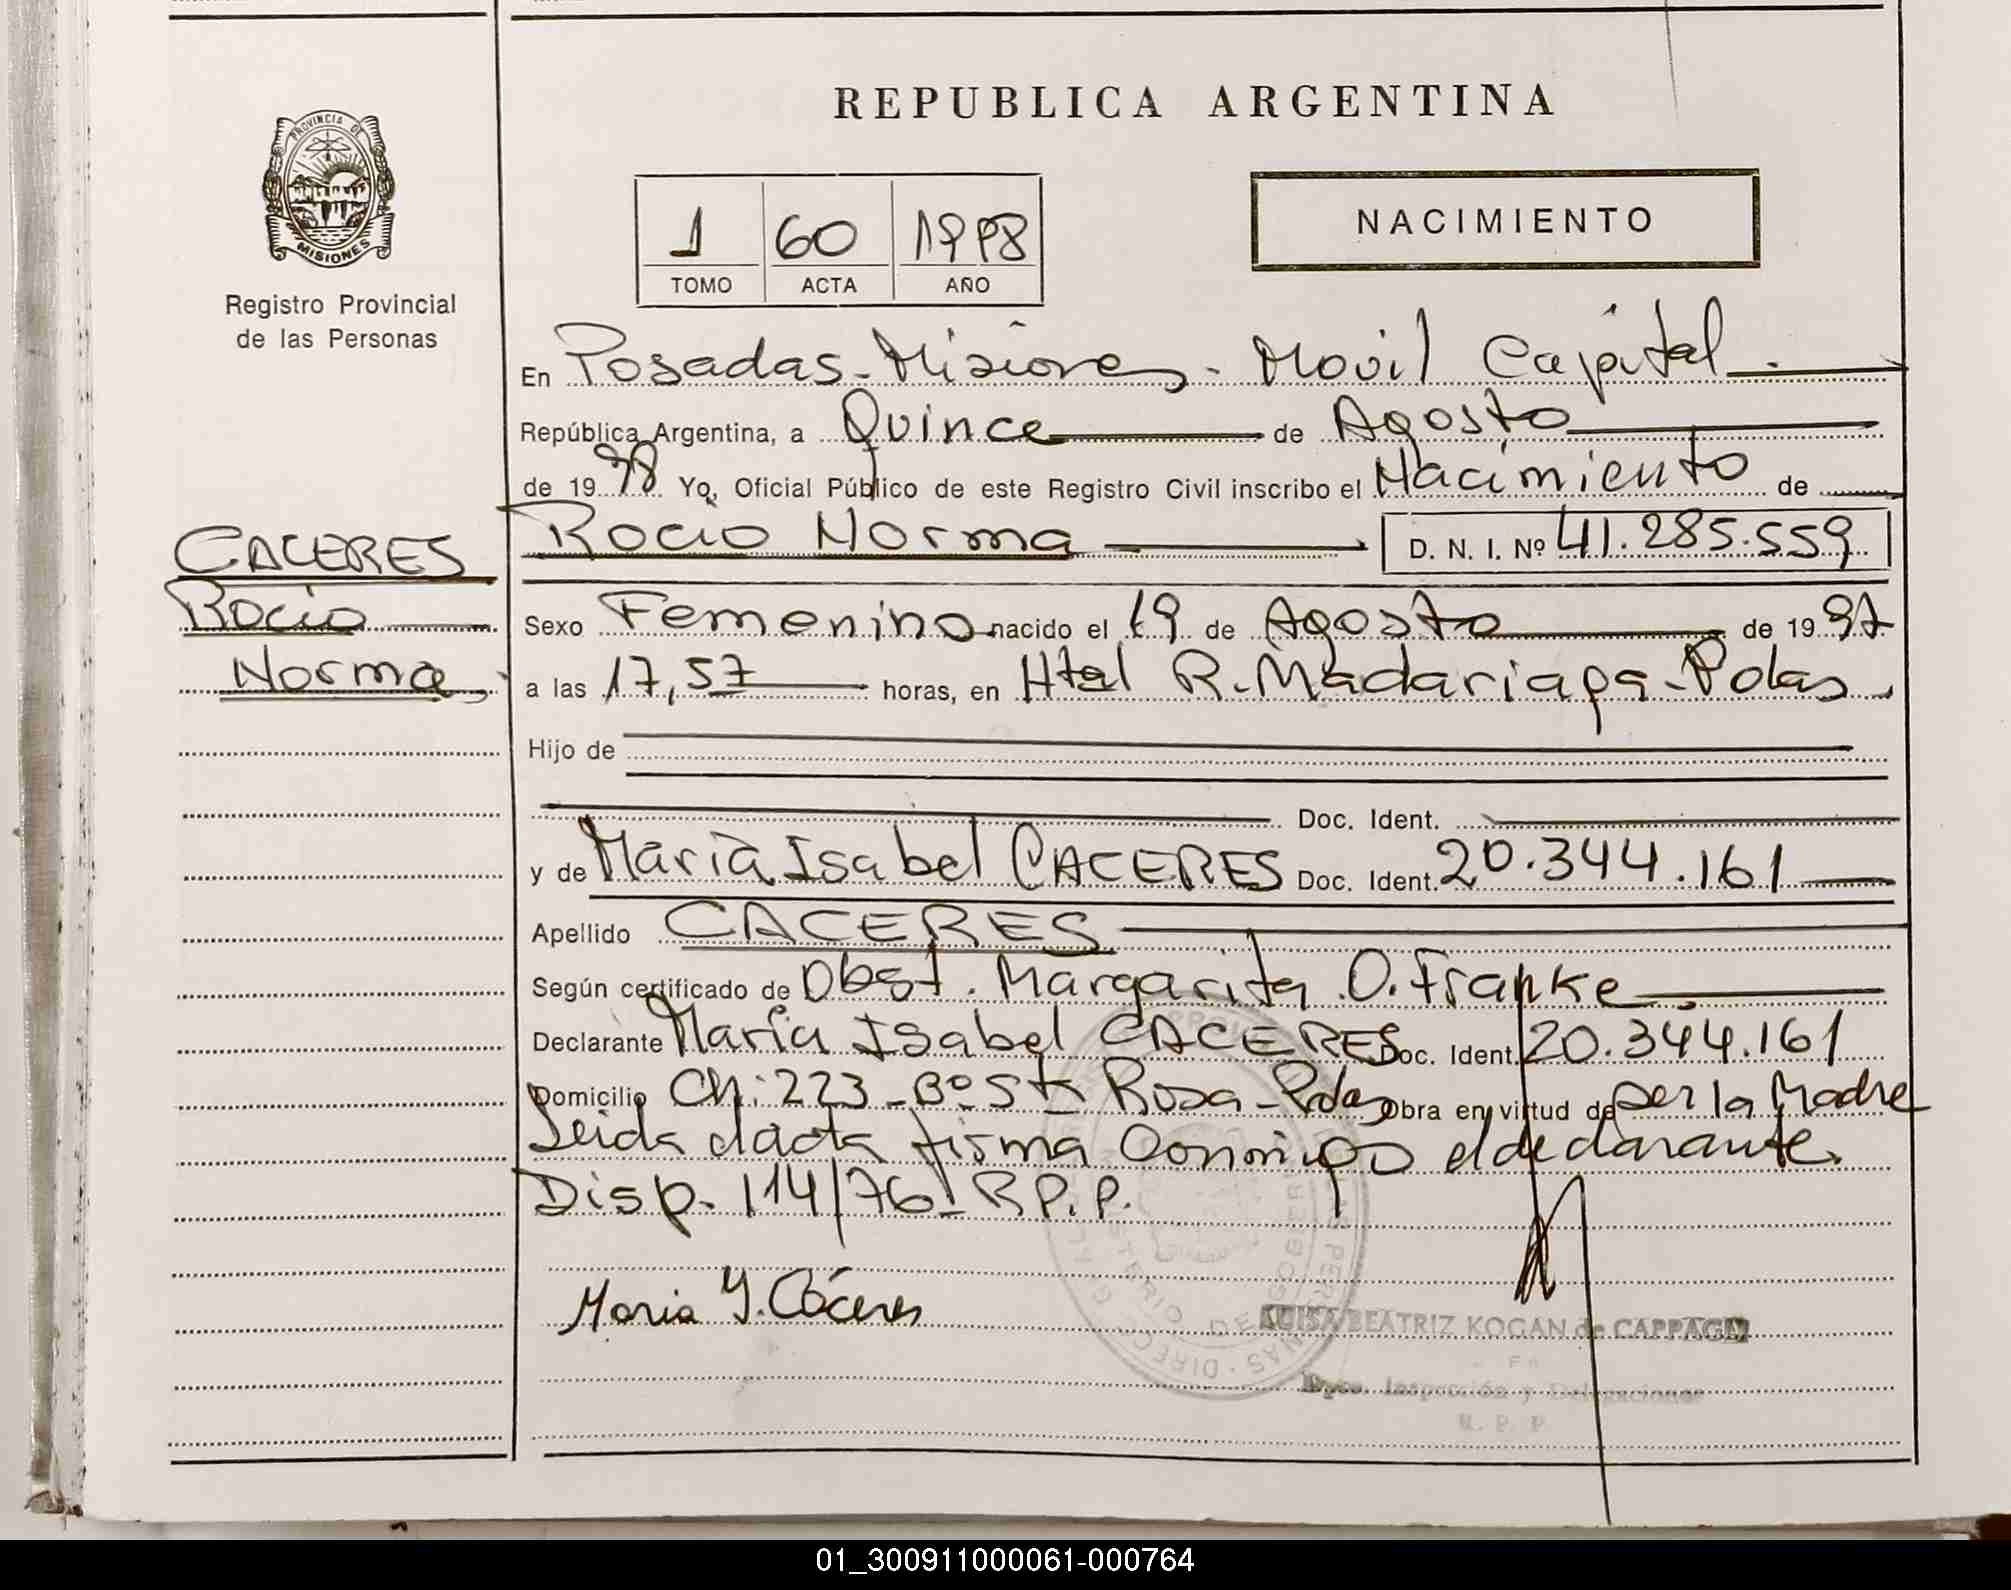 REPUBLICA ARGENTINA
PROVINCIA DE
MISIONES
Registro Provincial
de las Personas
1 60 1998
TOMO ACTA AÑO
NACIMIENTO
En Posadas - Misiones - Movil Capital
República Argentina, a Quince de Agosto
de 1998 Yo, Oficial Público de este Registro Civil inscribo el Nacimiento de
CACERES
Rocio
Norma
Rocio Norma D. N. I. Nº 41.285.559
Sexo Femenino nacido el 19 de Agosto de 1997
a las 17,57 horas, en Htal R. Madariaga - Pdas
Hijo de
Doc. Ident.
y de Maria Isabel CACERES Doc. Ident. 20.344.161
Apellido CACERES
Según certificado de Obst. Margarita O. Franke
Declarante María Isabel CACERES Doc. Ident. 20.344.161
Domicilio Ch: 223 - Bº Sta Rosa - Pdas Obra en virtud de ser la Madre
Leida el acta firma conmigo el declarante.
Disp. 114/76 - R.P.P.
Maria Y. Cáceres
LUISA BEATRIZ KOGAN de CAPPAGLI
Dpto. Inspección y Delegaciones
R. P. P.
01_300911000061-000764